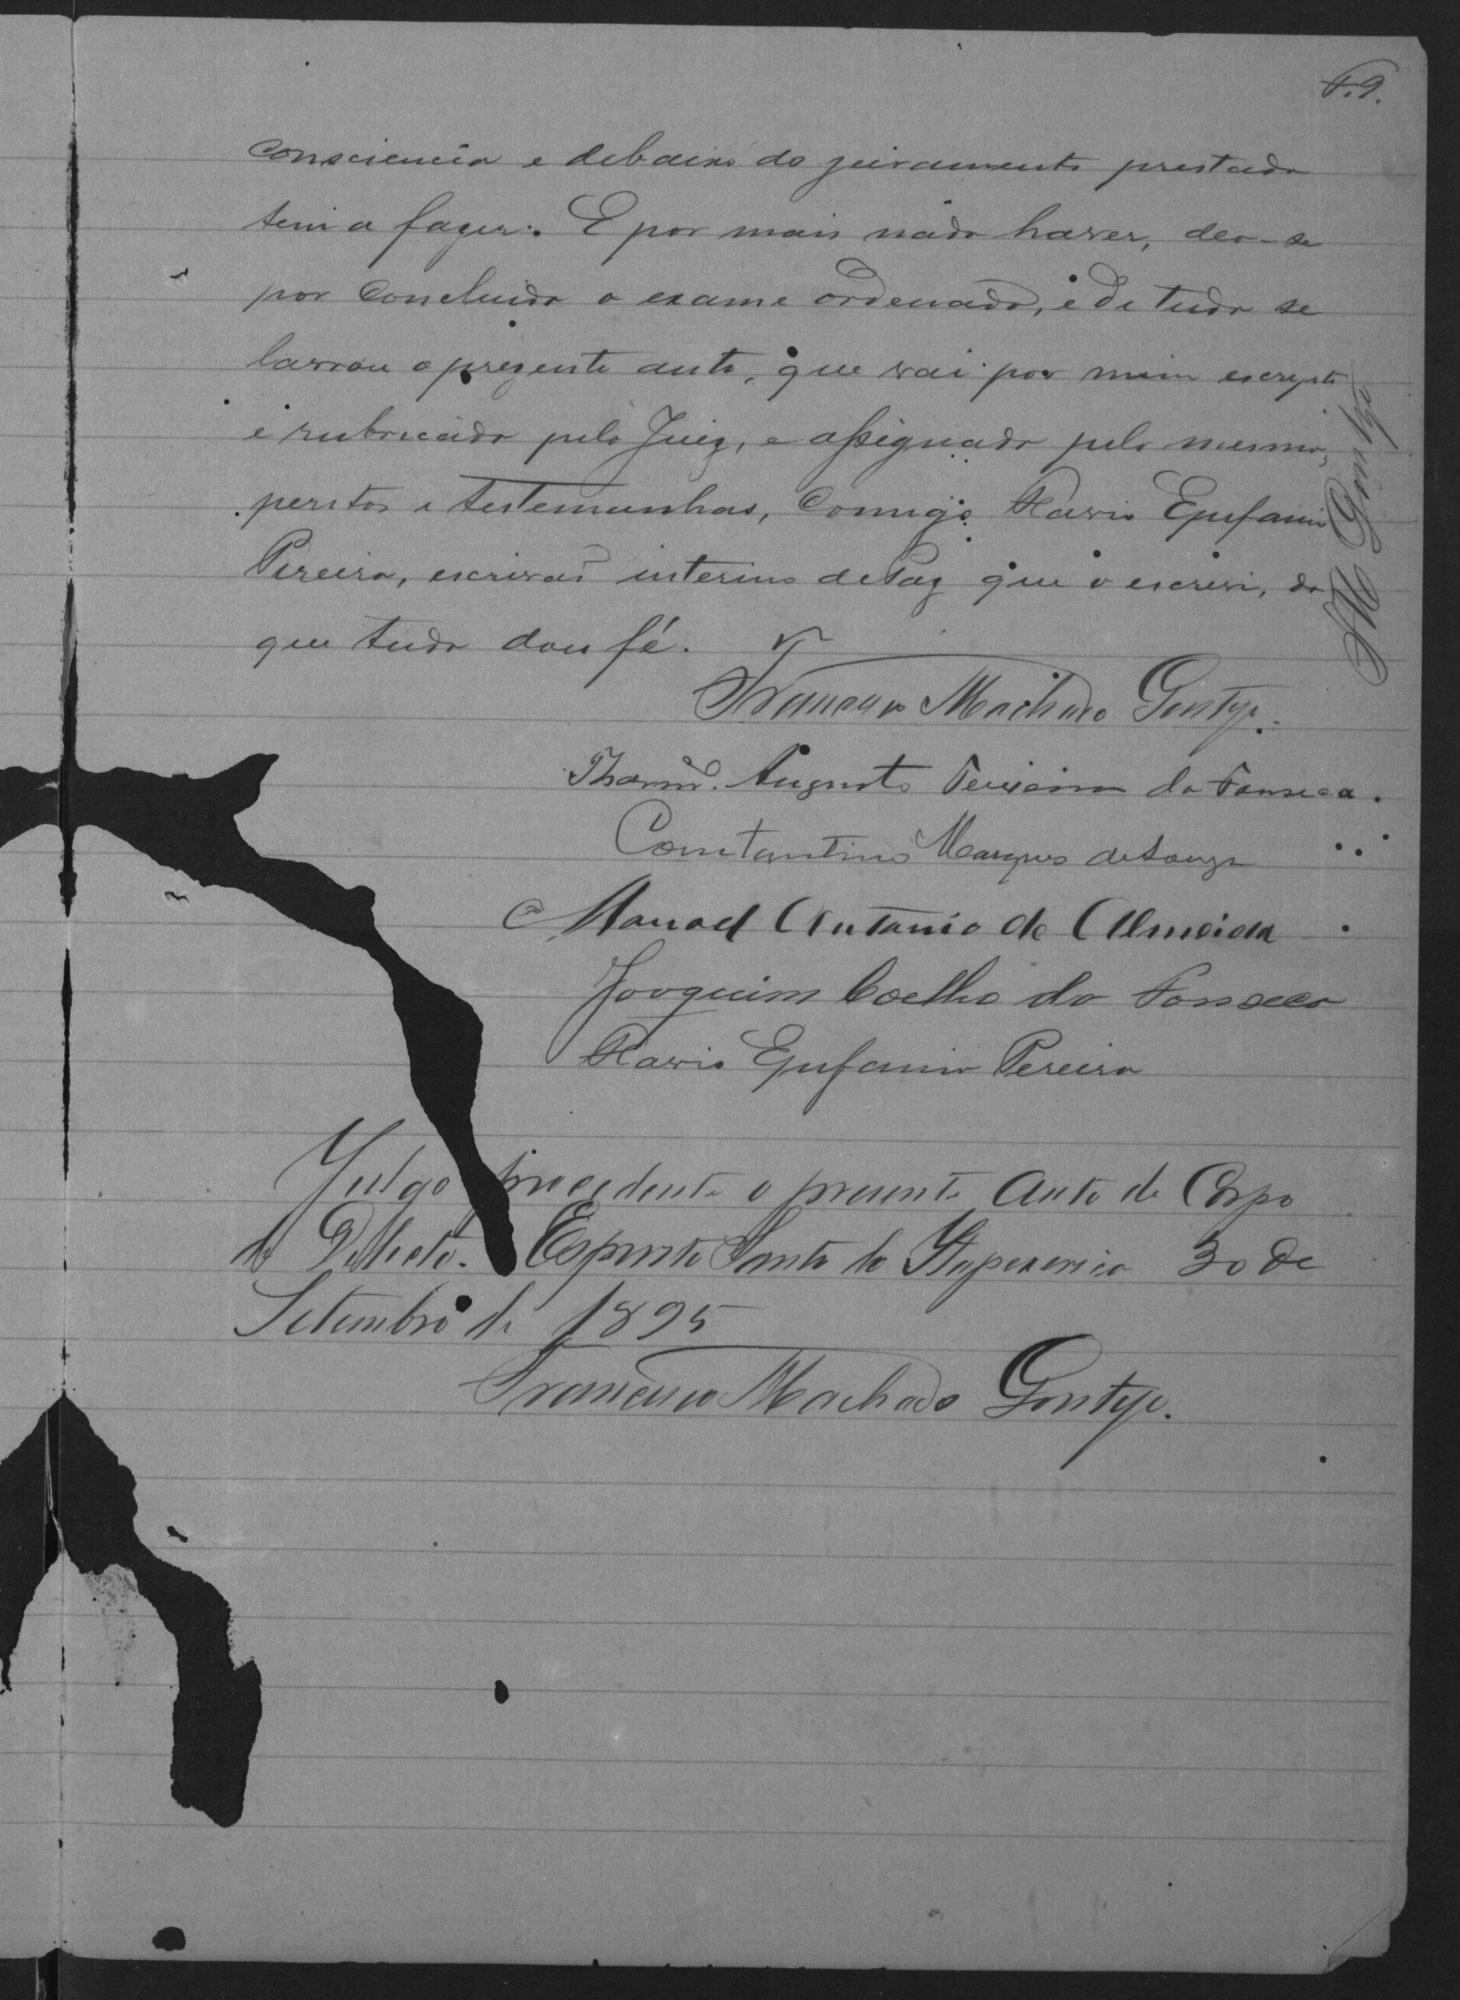 f. 9.
consciencia e debaixo do juramento prestado
tem a fazer. E por mais nada haver, deo-se
por concluido o exame ordenado, e de tudo se
lavrou o prezente auto, que vai por mim escripto
e rubricado pelo Juiz, e assignado pelo mesmo,
peritos e testemunhas, comigo Flavio Epifanio
Pereira, escrivaõ interino de Paz que o escrevi, do
que tudo dou fé.
F M Gontijo
Francisco Machado Gontijo.
Augusto Teixeira da Fonseca.
Constantino Marques de Souza
Manoel Antonio de Almeida
Joaquim Coelho da Fonseca
Flavio Epifanio Pereira
Julgo procedente o presente Auto de Corpo
de Delicto. Espirito Santo do Itapecerica 30 de
Setembro de 1895
Francisco Machado Gontijo.